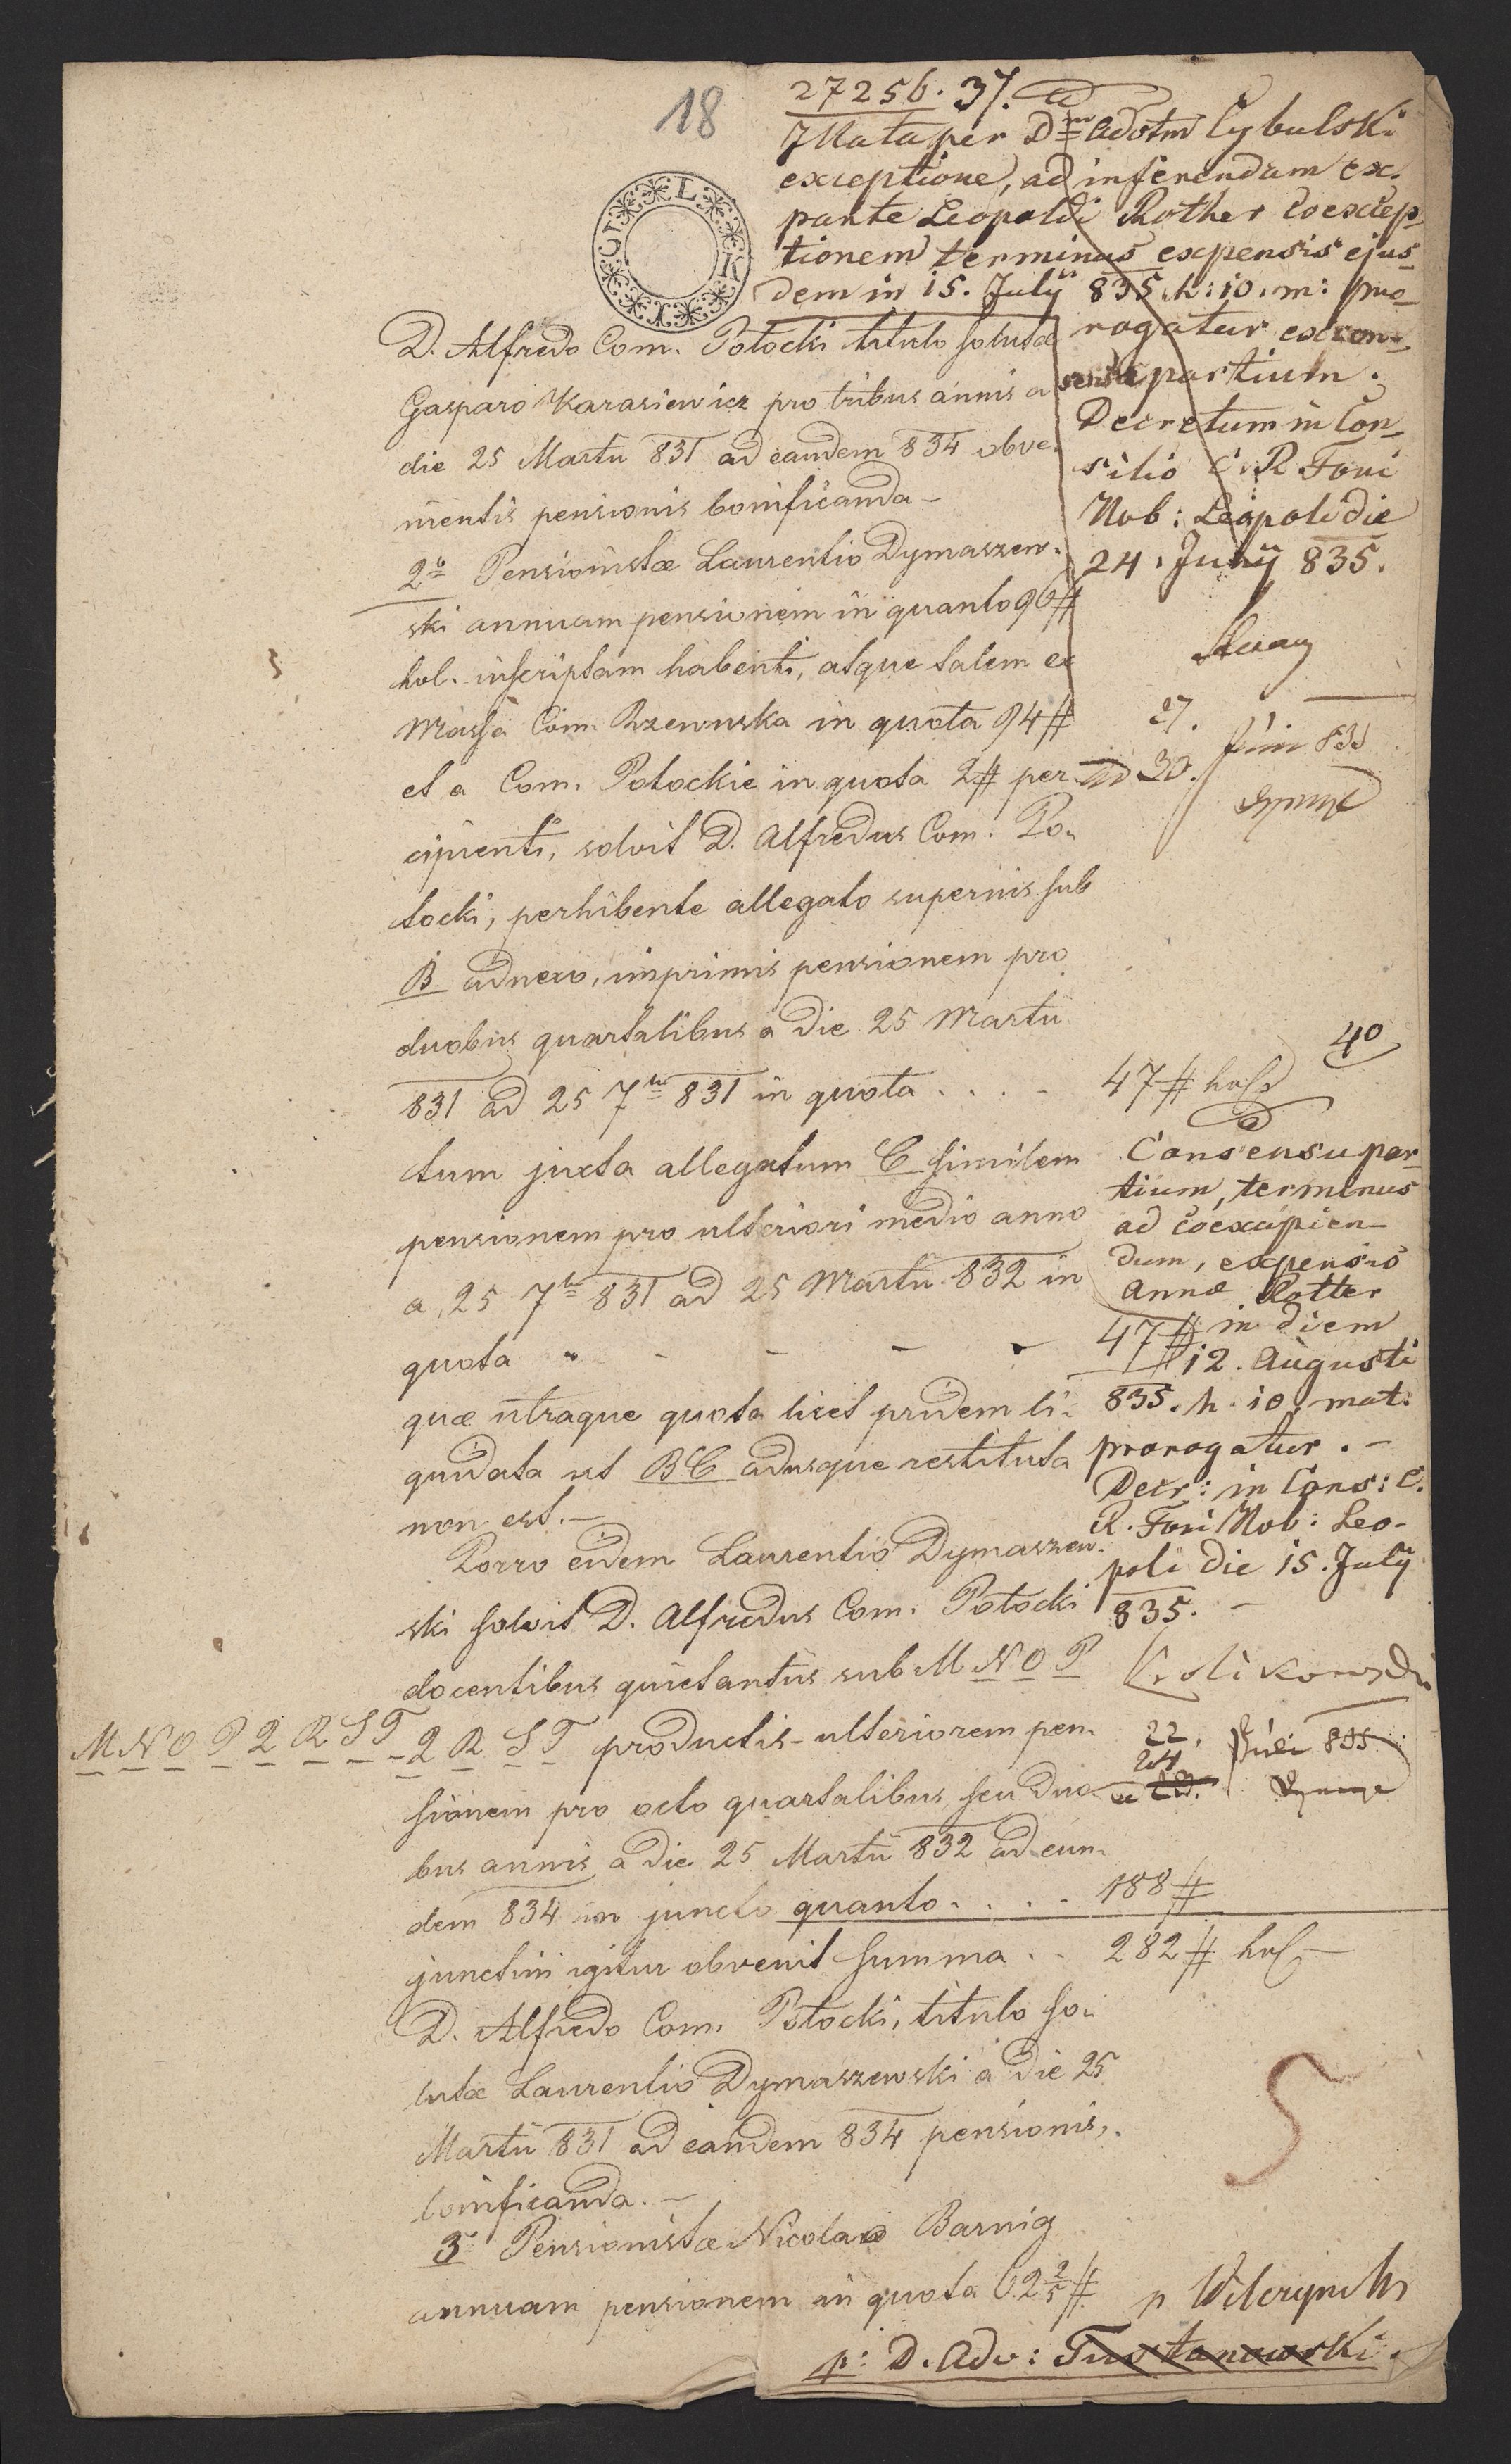 18
27256. 37.
Illata per Dnum Adotm Cybulski
exceptione, ad inferendam ex
parte Leopoldi Rother coexcep-
tionem terminus expensis ejus-
dem in 15. Julÿ 835. h: 10. m: pro-
rogatur ex con-
sensu partium.
Decretum in Con-
silio C. R. Fori
Nob: Leopoli die
24. Junÿ 835.
27.
ad 30. Juni 835
40
Consensu par-
tium, terminus
ad coexcipien-
dum, expensis
Annæ Rotter
in diem
12. Augusti
835. h. 10. mat:
prorogatur. -
Decr: in Cons: C.
R. Fori Nob: Leo-
poli die 15. Julÿ
835. -
Krolikowski
22.
24. Juli 835
D. Alfredo Com. Potocki titulo solutæ
Gasparo Karasiewicz pro tribus annis a
die 25 Martii 831 ad eandem 834 obve-
nientis pensionis bonificanda -
2do Pensionistæ Laurentio Dymaszew-
ski annuam pensionem in quanto 96 #
hol. inscriptam habenti, atque talem ex
Massa Com. Rzewuska in quota 94 #
et a Com. Potockie in quota 2 # per-
cipienti, solvit D. Alfredus Com. Po-
tocki, perhibente allegato supernis sub
B adnexo, imprimis pensionem pro
duobus quartalibus a die 25 Martii
831 ad 25 7bris 831 in quota . . . - 47 # hol
tum juxta allegatum C similem
pensionem pro ulteriori medio anno
a 25 7bris 831 ad 25 Martii 832 in
quota - - - - 47 #
quæ utraque quota licet pridem li-
quidata ut B C adusque restituta
non est. -
Porro eidem Laurentio Dymaszew-
ski solvit D. Alfredus Com. Potocki
docentibus quietantiis sub M N O P
M N O P Q R S T
Q R S T productis - ulteriorem pen-
sionem pro octo quartalibus seu duo-
bus annis a die 25 Martii 832 ad eun-
dem 834 in juncto quanto. . . . 188 #
junctim igitur obvenit summa . . 282 # hol -
D. Alfredo Com. Potocki, titulo so-
lutæ Laurentio Dymaszewski a die 25
Martii 831 ad eandem 834 pensionis,
bonificanda. -
3tio Pensionistæ Nicolao Barnig
annuam pensionem in quota 62 2/5 #
5
p: D. Adv: Tustanowski.